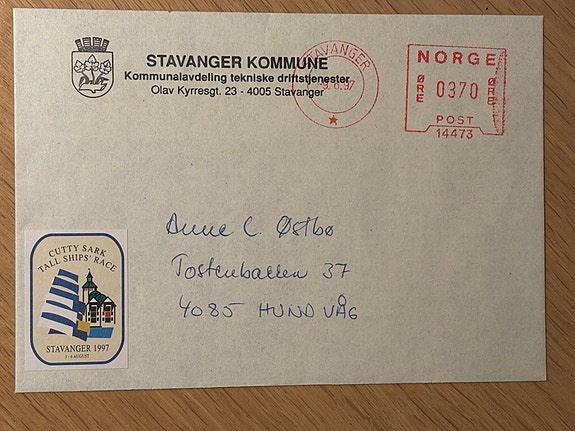 STAVANGER KOMMUNE
Kommunalavdeling tekniske driftstjenester
Olav Kyrresgt. 23 - 4005 Stavanger
STAVANGER
9.6.97
NORGE
ØRE 0370 ØRE
POST
14473
Anne C. Østbø
Tostenbakken 37
4085 HUNDVÅG
CUTTY SARK
TALL SHIPS' RACE
STAVANGER 1997
3 - 6 AUGUST